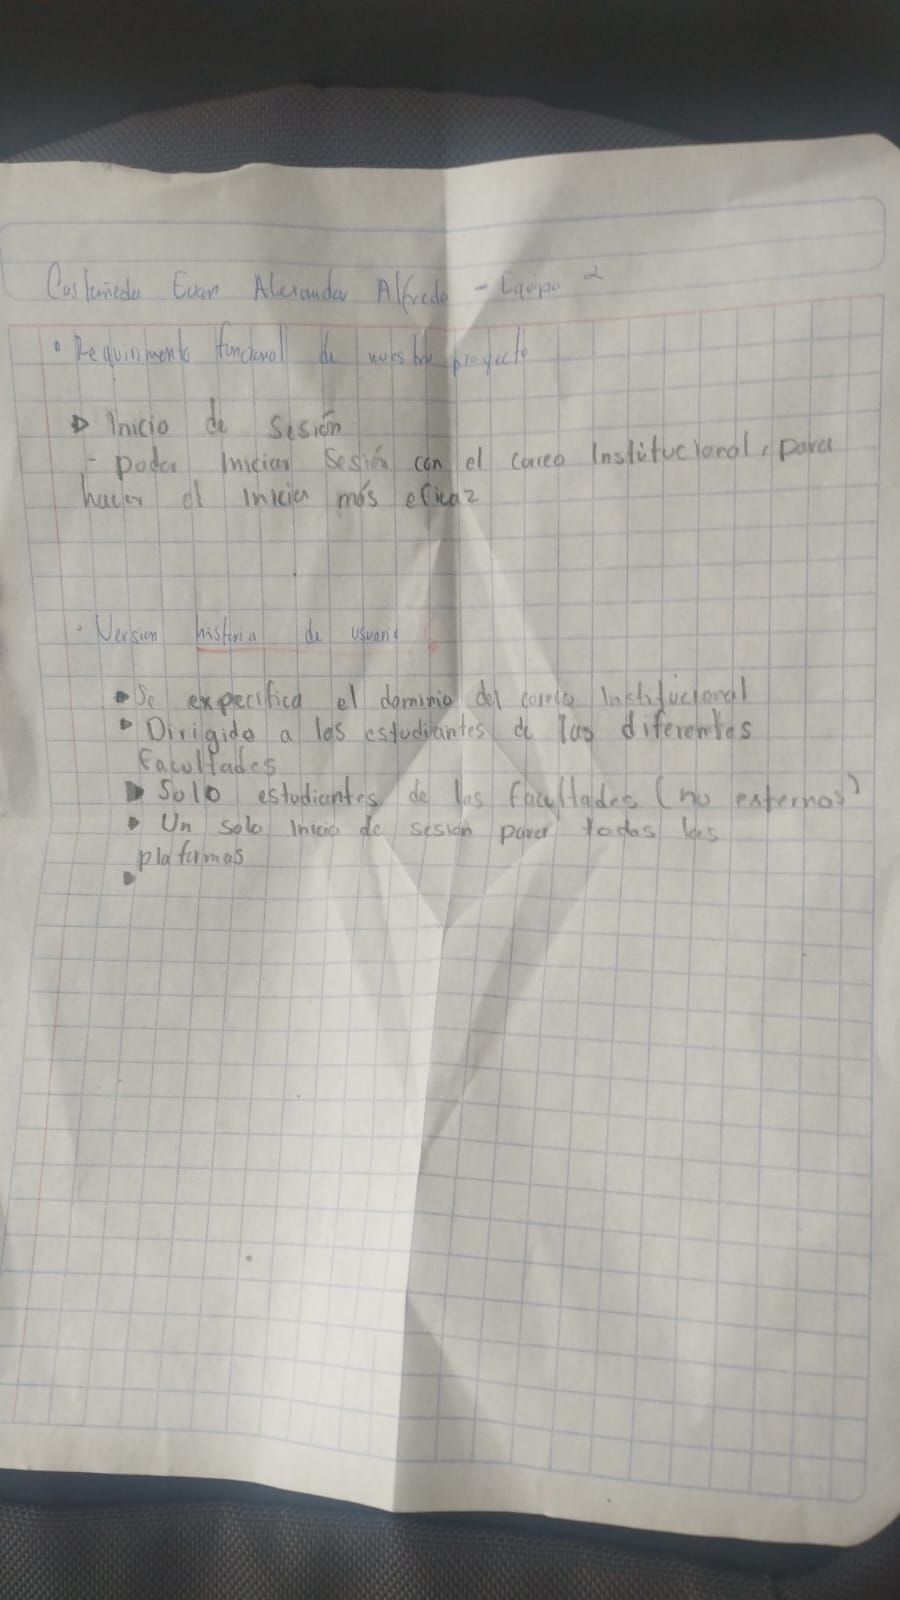 Castañeda Evan Alexander Alfredo - Equipo 2
• Requirimento funcional de nuestro proyecto
Inicio de Sesión
- poder Iniciar Sesión con el correo Institucional, para
hacer el inicia más eficaz
• Version historia de usuario
Se expecifica el dominio del correo Institucional
Dirigido a los estudiantes de las diferentes
facultades
Solo estudiantes de las facultades (no externos)
Un solo Inicio de sesion para todas las
plaformas